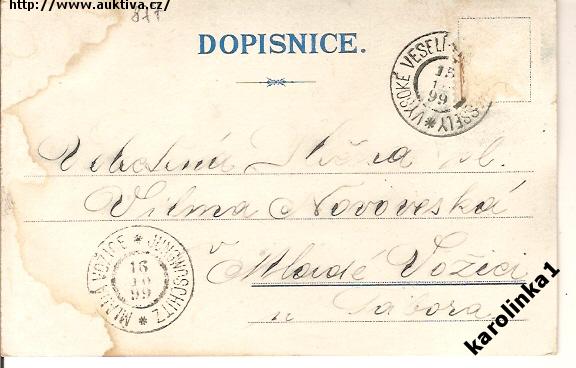 http://www.auktiva.cz/
DOPISNICE.
VYSOKÉ VESELÍ
15
99
Velectěná Slečna
Vilma Novoveská
v
Mladé Vožici
u Tábora
MLADÁ VOŽICE * JUNGWOSCHITZ *
16
10
99
karolinka1